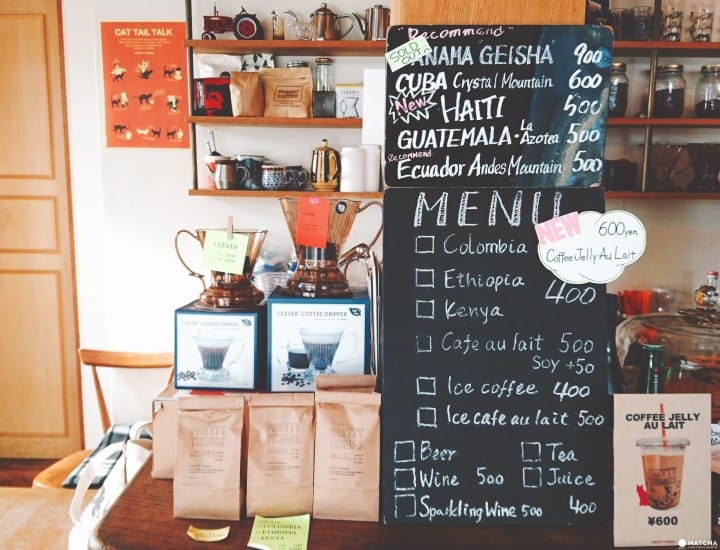 CAT TAIL TALK
Recommend
SOLD OUT
PANAMA GEISHA 900
CUBA Crystal Mountain 600
New HAITI 500
GUATEMALA - La Azotea 500
Recommend
ECUADOR ANDES MOUNTAIN 500
MENU
NEW 600yen
Coffee Jelly Au Lait
Colombia
Ethiopia 400
Kenya
Cafe au lait 500
Soy +50
Ice coffee 400
Ice cafe au lait 500
Beer Tea
Wine 500 Juice
Sparkling Wine 500 400
CLEVER
CLEVER COFFEE DRIPPER
CLEVER COFFEE DRIPPER
PRETTY THINGS
PRETTY THINGS
PRETTY THINGS
COLOMBIA
ETHIOPIA
KENYA
COFFEE JELLY
AU LAIT
¥600
MATCHA